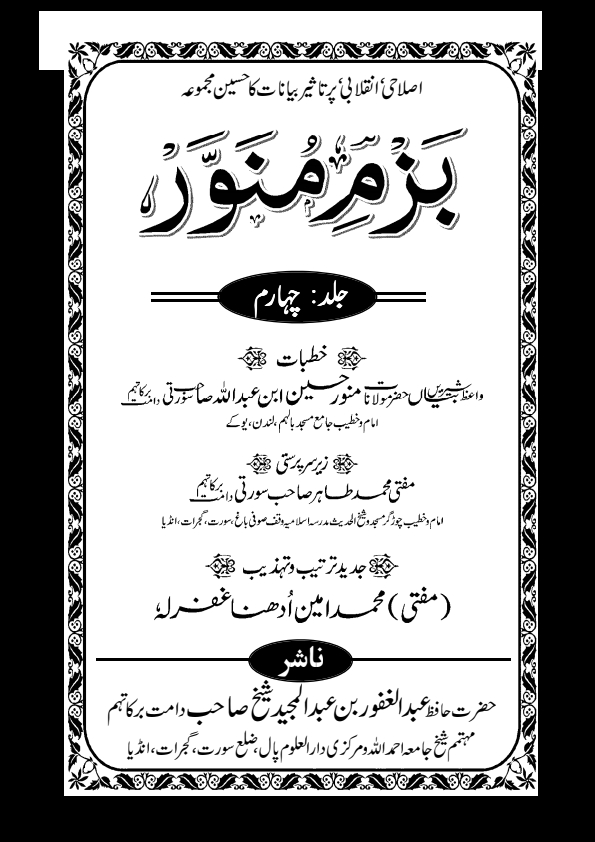 اصلاحی‘ انقلابی‘ پر تاثیر بیانات کا حسین مجموعہ
بَزْمِ مُنَوَّرْ
جلد: چہارم
خطبات
واعظ شیریں بیاں حضرت مولانا منور حسین ابن عبداللہ صاحب سورتی دامت برکاتہم
امام و خطیب جامع مسجد بالہم، لندن، یوکے
زیر سرپرستی
مفتی محمد طاہر صاحب سورتی دامت برکاتہم
امام و خطیب چوڑگر مسجد و شیخ الحدیث مدرسہ اسلامیہ وقف صوفی باغ، سورت، گجرات، انڈیا
جدید ترتیب و تہذیب
(مفتی) محمد امین اُدھنا غفرلہٗ
ناشر
حضرت حافظ عبدالغفور بن عبدالمجید شیخ صاحب دامت برکاتہم
مہتمم شیخ جامعہ احمد اللہ و مرکزی دارالعلوم پال، ضلع سورت، گجرات، انڈیا